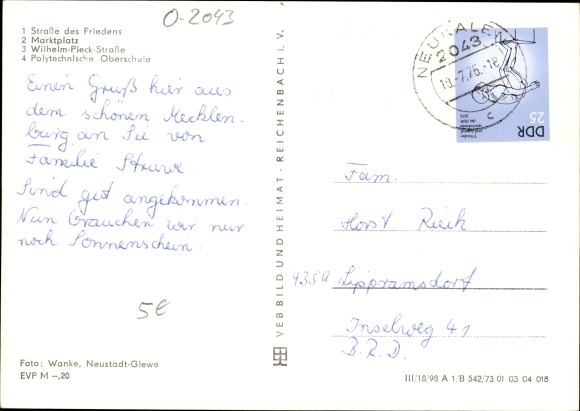 O-2043
1 Straße des Friedens
2 Marktplatz
3 Wilhelm-Pieck-Straße
4 Polytechnische Oberschule
Einen Gruß hier aus
dem schönen Mecklen-
burg an Sie von
Familie Struwe
Sind gut angekommen.
Nun brauchen wir nur
noch Sonnenschein.
5€
Foto: Wanke, Neustadt-Glewe
EVP M –,20
VEB BILD UND HEIMAT · REICHENBACH i. V.
NEUKALEN
2043
18.7.75.-18
c
DDR
25
Fam.
Horst Rieck
4359 Lippramsdorf
Inselweg 41
B.R.D.
III/18/98 A 1/B 542/73 01 03 04 018